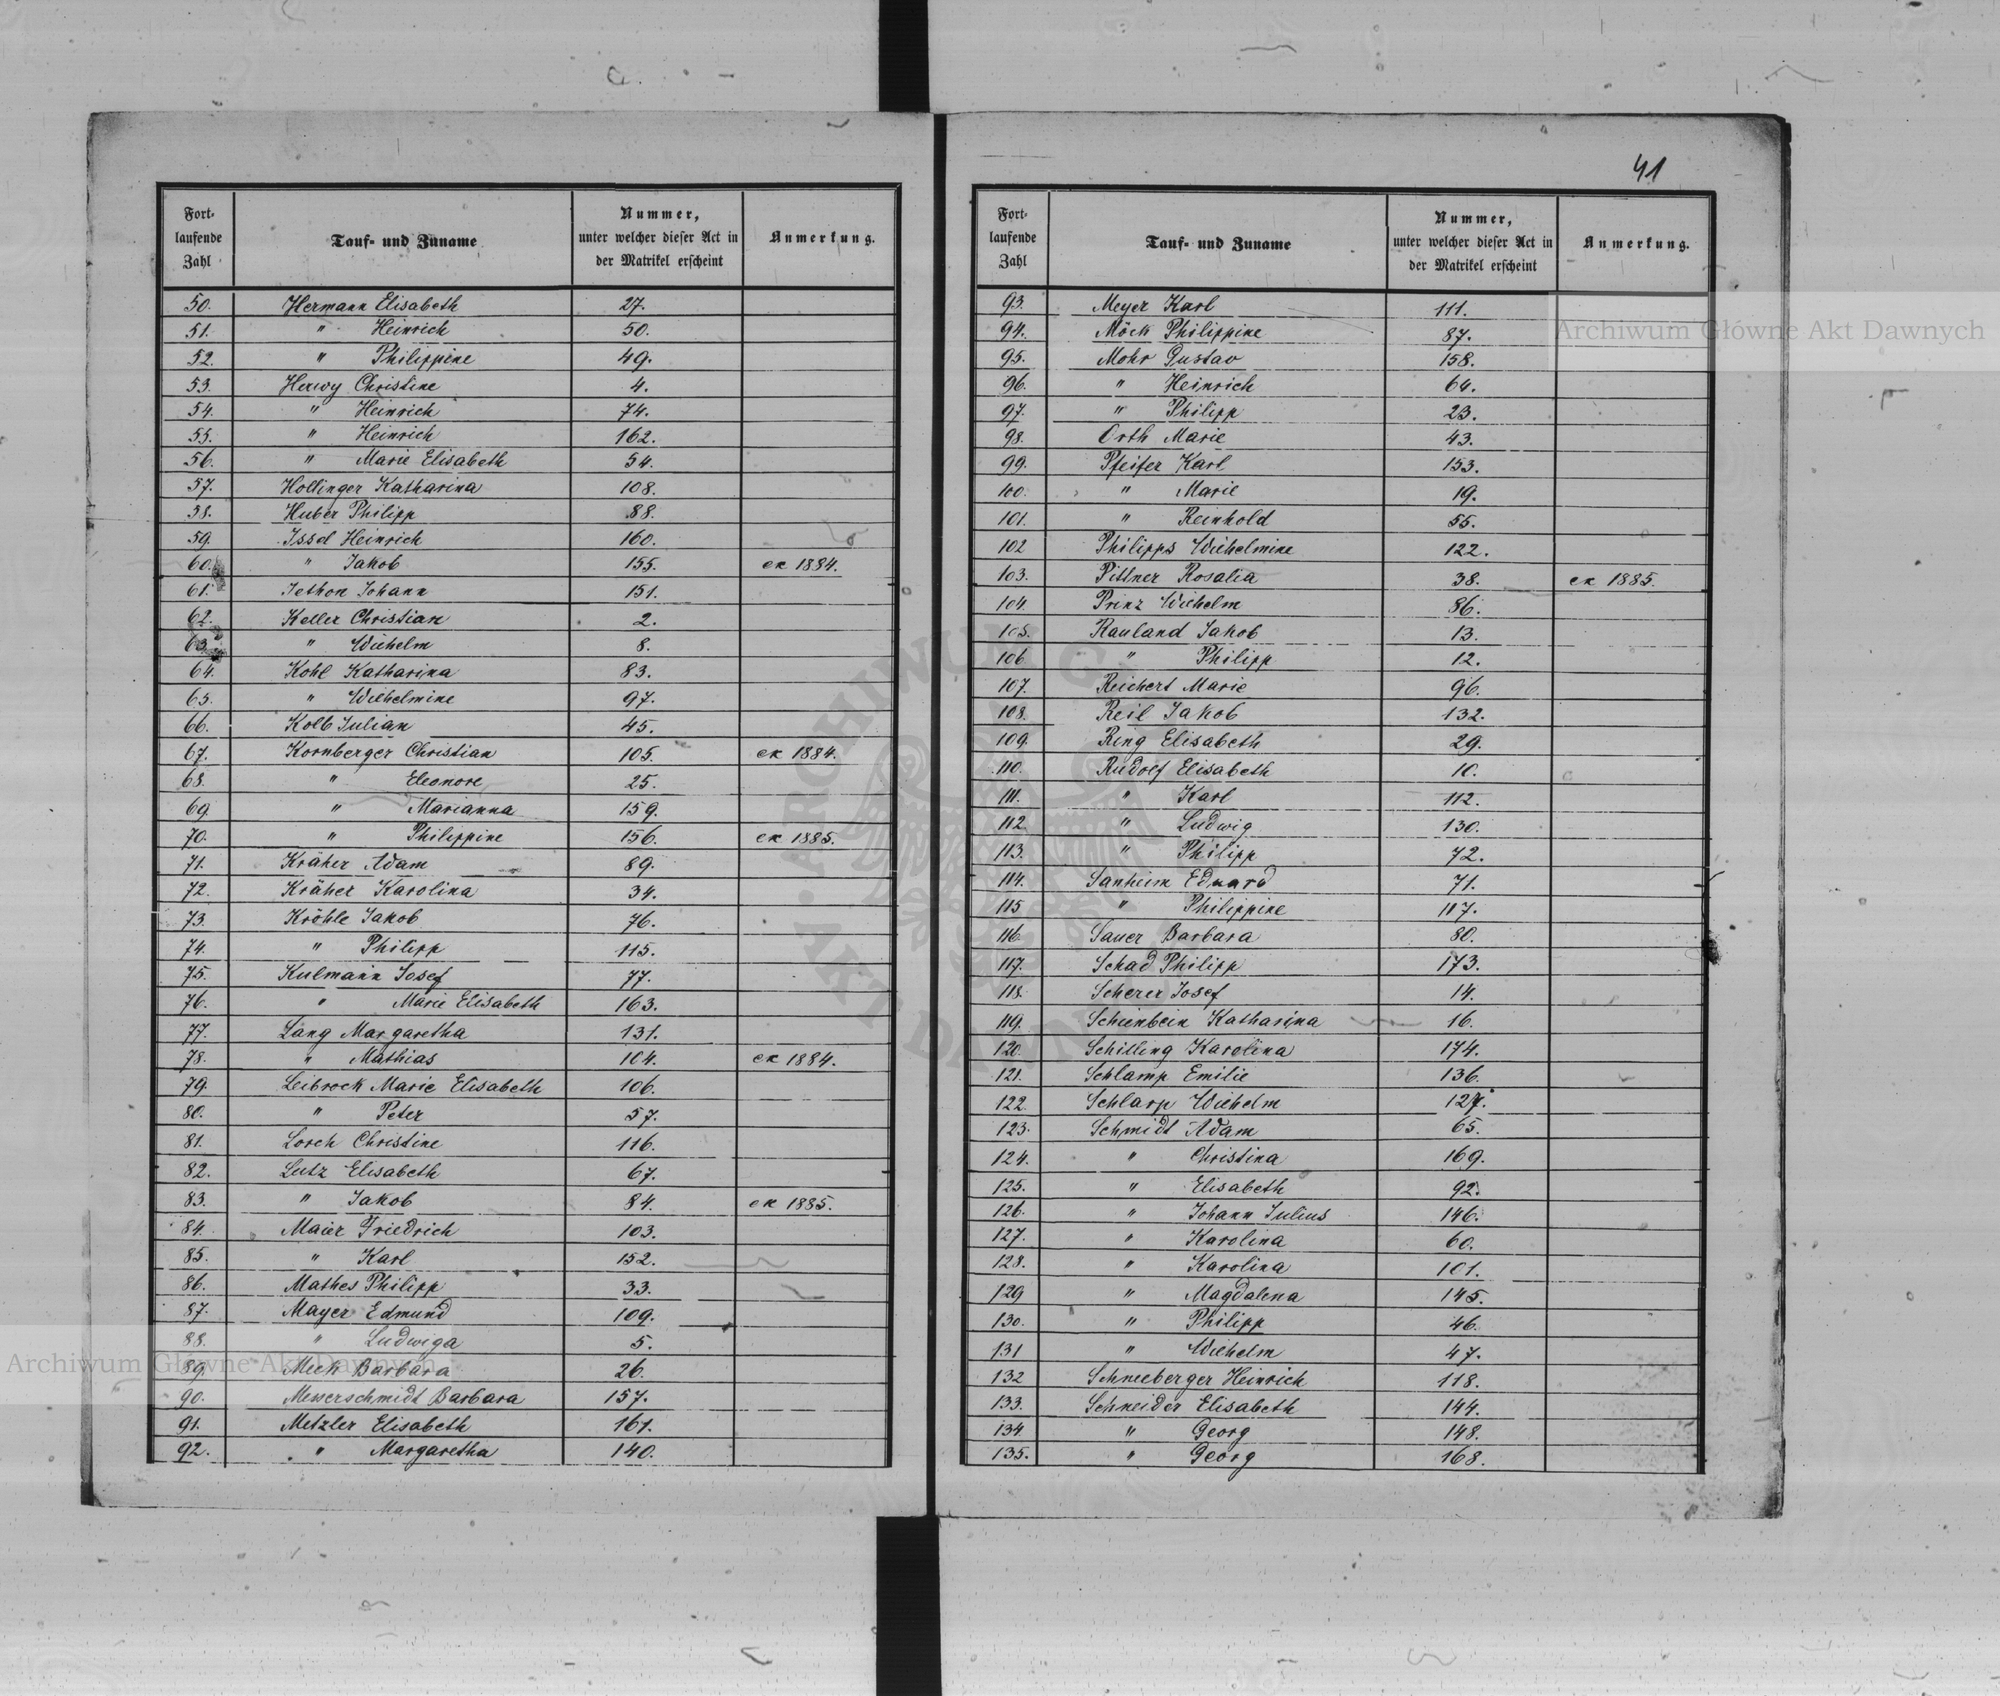 41
Fort-
laufende
Zahl
Tauf- und Zuname
Nummer,
unter welcher dieser Act in
der Matrikel erscheint
Anmerkung.
50. Hermann Elisabeth 27.
51. " Heinrich 50.
52. " Philippine 49.
53. Herwy Christine 4.
54. " Heinrich 74.
55. " Heinrich 162.
56. " Marie Elisabeth 54.
57. Hollinger Katharina 108.
58. Huber Philipp 88.
59. Issel Heinrich 160.
60. " Jakob 155. ex 1884.
61. Jethon Johann 151.
62. Keller Christian 2.
63. " Wilhelm 8.
64. Kohl Katharina 83.
65. " Wilhelmine 97.
66. Kolb Julian 45.
67. Kornberger Christian 105. ex 1884.
68. " Eleonore 25.
69. " Marianna 159.
70. " Philippine 156. ex 1885.
71. Kräher Adam 89.
72. Kräher Karolina 34.
73. Kröhle Jakob 76.
74. " Philipp 115.
75. Kulmann Josef 77.
76. " Marie Elisabeth 163.
77. Lang Margaretha 131.
78. " Mathias 104. ex 1884.
79. Leibrock Marie Elisabeth 106.
80. " Peter 57.
81. Lorch Christine 116.
82. Lutz Elisabeth 67.
83. " Jakob 84. ex 1885.
84. Maier Friedrich 103.
85. " Karl 152.
86. Mathes Philipp 33.
87. Mayer Edmund 109.
88. " Ludwiga 5.
89. Meck Barbara 26.
90. Messerschmidt Barbara 157.
91. Metzler Elisabeth 161.
92. " Margaretha 140.
Fort-
laufende
Zahl
Tauf- und Zuname
Nummer,
unter welcher dieser Act in
der Matrikel erscheint
Anmerkung.
93. Meyer Karl 111.
94. Möck Philippine 87.
95. Mohr Gustav 158.
96. " Heinrich 64.
97. " Philipp 23.
98. Orth Marie 43.
99. Pfeifer Karl 153.
100. " Marie 19.
101. " Reinhold 55.
102 Philipps Wilhelmine 122.
103. Pittner Rosalia 38. ex 1885.
104. Prinz Wilhelm 86.
105. Rauland Jakob 13.
106 " Philipp 12.
107. Reichert Marie 96.
108. Reil Jakob 132.
109. Ring Elisabeth 29.
110. Rudolf Elisabeth 10.
111. " Karl 112.
112. " Ludwig 130.
113. " Philipp 72.
114. Sanheim Eduard 71.
115 " Philippine 117.
116 Sauer Barbara 80.
117. Schad Philipp 173.
118. Scherer Josef 14.
119. Schienbein Katharina 16.
120. Schilling Karolina 174.
121. Schlamp Emilie 136.
122 Schlarp Wilhelm 127.
123. Schmidt Adam 65.
124. " Christina 169.
125. " Elisabeth 92.
126. " Johann Julius 146.
127. " Karolina 60.
128. " Karolina 101.
129 " Magdalena 145.
130. " Philipp 46.
131 " Wilhelm 47.
132 Schneeberger Heinrich 118.
133. Schneider Elisabeth 144.
134 " Georg 148.
135. " Georg 168.
Archiwum Główne Akt Dawnych
Archiwum Główne Akt Dawnych
ARCHIWUM GŁÓWNE AKT DAWNYCH